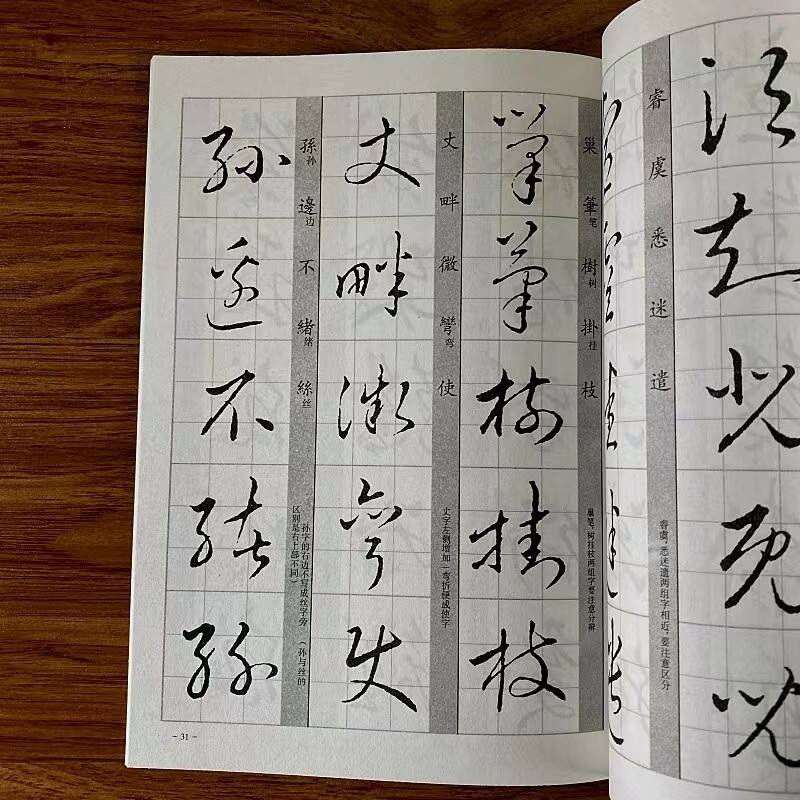 睿 虞 悉 迷 遣
睿虞,悉迷遗两组字相近,要注意区分
巢 筆笔 樹树 掛挂 枝
巢笔,树挂枝两组字要注意分辨
巢
筆
樹
掛
枝
丈 畔 微 彎弯 使
丈字左侧增加一弯折便成使字
丈
畔
微
彎
使
孫孙 邊边 不 緒绪 絲丝
孙字的右边不写成丝字旁(孙与丝的
区别是右上部不同)
孫
邊
不
緒
絲
- 31 -